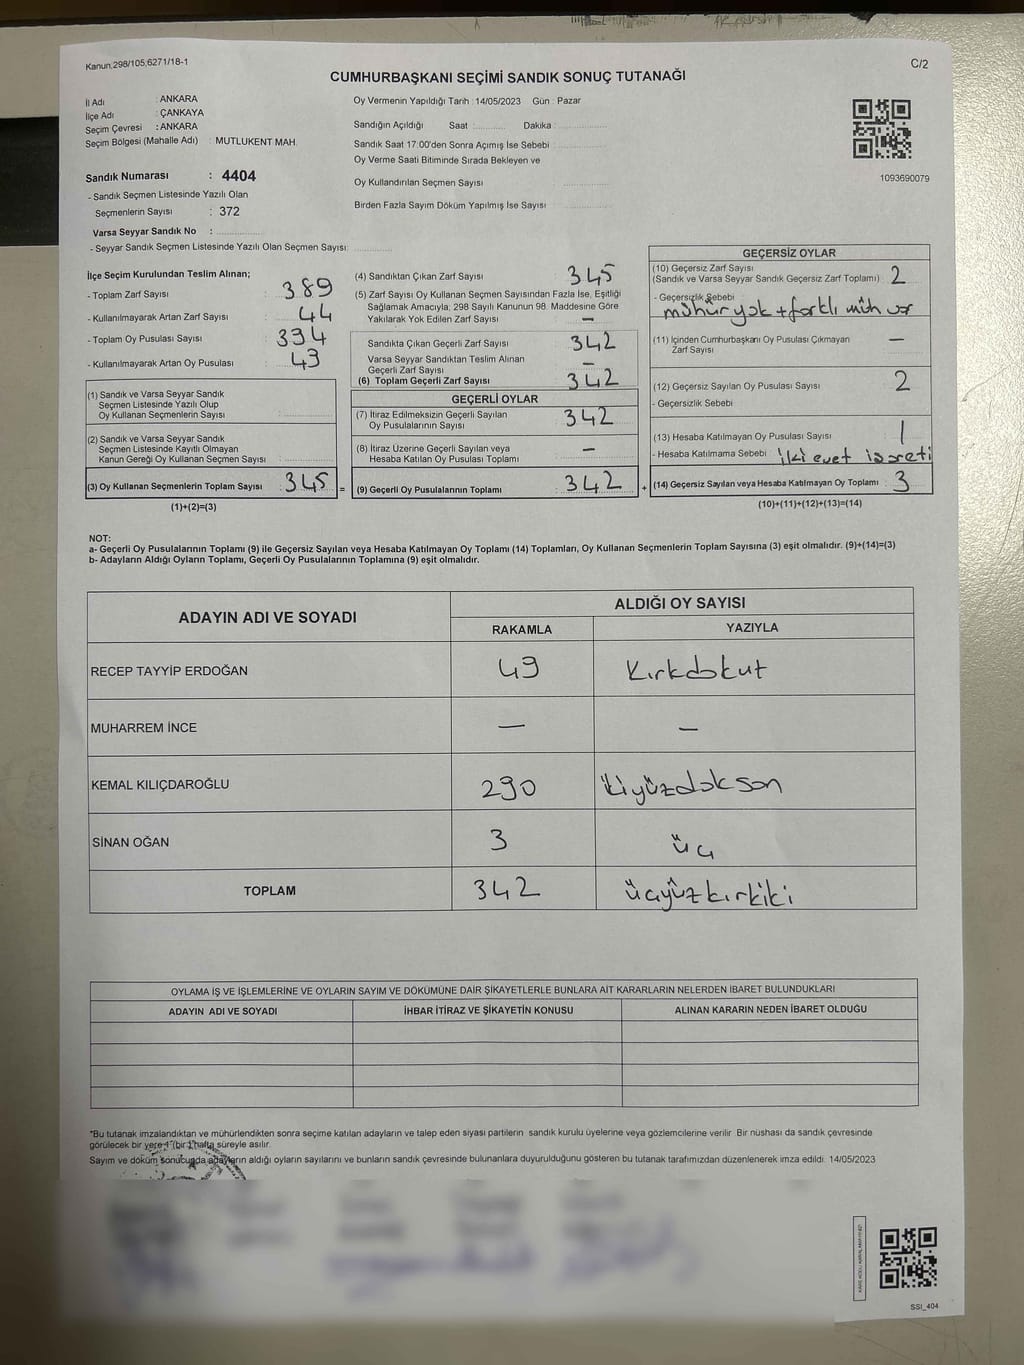 Kanun:298/105;6271/18-1
C/2
CUMHURBAŞKANI SEÇİMİ SANDIK SONUÇ TUTANAĞI
İl Adı : ANKARA
İlçe Adı : ÇANKAYA
Seçim Çevresi : ANKARA
Seçim Bölgesi (Mahalle Adı) : MUTLUKENT MAH.
Sandık Numarası : 4404
- Sandık Seçmen Listesinde Yazılı Olan
Seçmenlerin Sayısı : 372
Varsa Seyyar Sandık No :
- Seyyar Sandık Seçmen Listesinde Yazılı Olan Seçmen Sayısı:
Oy Vermenin Yapıldığı Tarih : 14/05/2023 Gün : Pazar
Sandığın Açıldığı Saat : Dakika :
Sandık Saat 17:00'den Sonra Açımış İse Sebebi
Oy Verme Saati Bitiminde Sırada Bekleyen ve
Oy Kullandırılan Seçmen Sayısı
Birden Fazla Sayım Döküm Yapılmış İse Sayısı
1093690079
İlçe Seçim Kurulundan Teslim Alınan;
- Toplam Zarf Sayısı : 389
- Kullanılmayarak Artan Zarf Sayısı : 44
- Toplam Oy Pusulası Sayısı : 394
- Kullanılmayarak Artan Oy Pusulası : 43
(1) Sandık ve Varsa Seyyar Sandık
Seçmen Listesinde Yazılı Olup
Oy Kullanan Seçmenlerin Sayısı :
(2) Sandık ve Varsa Seyyar Sandık
Seçmen Listesinde Kayıtlı Olmayan
Kanun Gereği Oy Kullanan Seçmen Sayısı :
(3) Oy Kullanan Seçmenlerin Toplam Sayısı : 345 =
(1)+(2)=(3)
(4) Sandıktan Çıkan Zarf Sayısı : 345
(5) Zarf Sayısı Oy Kullanan Seçmen Sayısından Fazla İse, Eşitliği
Sağlamak Amacıyla; 298 Sayılı Kanunun 98. Maddesine Göre
Yakılarak Yok Edilen Zarf Sayısı : —
Sandıkta Çıkan Geçerli Zarf Sayısı : 342
Varsa Seyyar Sandıktan Teslim Alınan
Geçerli Zarf Sayısı : —
(6) Toplam Geçerli Zarf Sayısı : 342
GEÇERLİ OYLAR
(7) İtiraz Edilmeksizin Geçerli Sayılan
Oy Pusulalarının Sayısı : 342
(8) İtiraz Üzerine Geçerli Sayılan veya
Hesaba Katılan Oy Pusulası Toplamı : —
(9) Geçerli Oy Pusulalarının Toplamı : 342 +
GEÇERSİZ OYLAR
(10) Geçersiz Zarf Sayısı
(Sandık ve Varsa Seyyar Sandık Geçersiz Zarf Toplamı) : 2
- Geçersizlik Sebebi
mühür yok + farklı müh var
(11) İçinden Cumhurbaşkanı Oy Pusulası Çıkmayan
Zarf Sayısı —
(12) Geçersiz Sayılan Oy Pusulası Sayısı : 2
- Geçersizlik Sebebi
(13) Hesaba Katılmayan Oy Pusulası Sayısı : 1
- Hesaba Katılmama Sebebi iki evet işareti
(14) Geçersiz Sayılan veya Hesaba Katılmayan Oy Toplamı : 3
(10)+(11)+(12)+(13)=(14)
NOT:
a- Geçerli Oy Pusulalarının Toplamı (9) ile Geçersiz Sayılan veya Hesaba Katılmayan Oy Toplamı (14) Toplamları, Oy Kullanan Seçmenlerin Toplam Sayısına (3) eşit olmalıdır. (9)+(14)=(3)
b- Adayların Aldığı Oyların Toplamı, Geçerli Oy Pusulalarının Toplamına (9) eşit olmalıdır.
ADAYIN ADI VE SOYADI
ALDIĞI OY SAYISI
RAKAMLA YAZIYLA
RECEP TAYYİP ERDOĞAN 49 Kırkdokut
MUHARREM İNCE — —
KEMAL KILIÇDAROĞLU 290 ikiyüzdokson
SİNAN OĞAN 3 üç
TOPLAM 342 üçyüzkırkiki
OYLAMA İŞ VE İŞLEMLERİNE VE OYLARIN SAYIM VE DÖKÜMÜNE DAİR ŞİKAYETLERLE BUNLARA AİT KARARLARIN NELERDEN İBARET BULUNDUKLARI
ADAYIN ADI VE SOYADI İHBAR İTİRAZ VE ŞİKAYETİN KONUSU ALINAN KARARIN NEDEN İBARET OLDUĞU
*Bu tutanak imzalandıktan ve mühürlendikten sonra seçime katılan adayların ve talep eden siyasi partilerin sandık kurulu üyelerine veya gözlemcilerine verilir. Bir nüshası da sandık çevresinde
görülecek bir yere 1 (bir) hafta süreyle asılır.
Sayım ve döküm sonucunda adayların aldığı oyların sayılarını ve bunların sandık çevresinde bulunanlara duyurulduğunu gösteren bu tutanak tarafımızdan düzenlenerek imza edildi. 14/05/2023
SSI_404